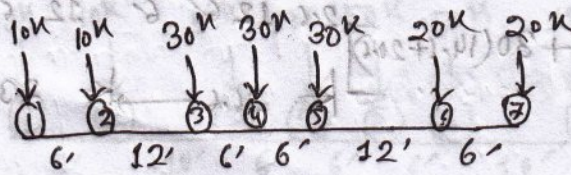 10k 10k 30k 30k 30k 20k 20k
1 2 3 4 5 6 7
6' 12' 6' 6' 12' 6'